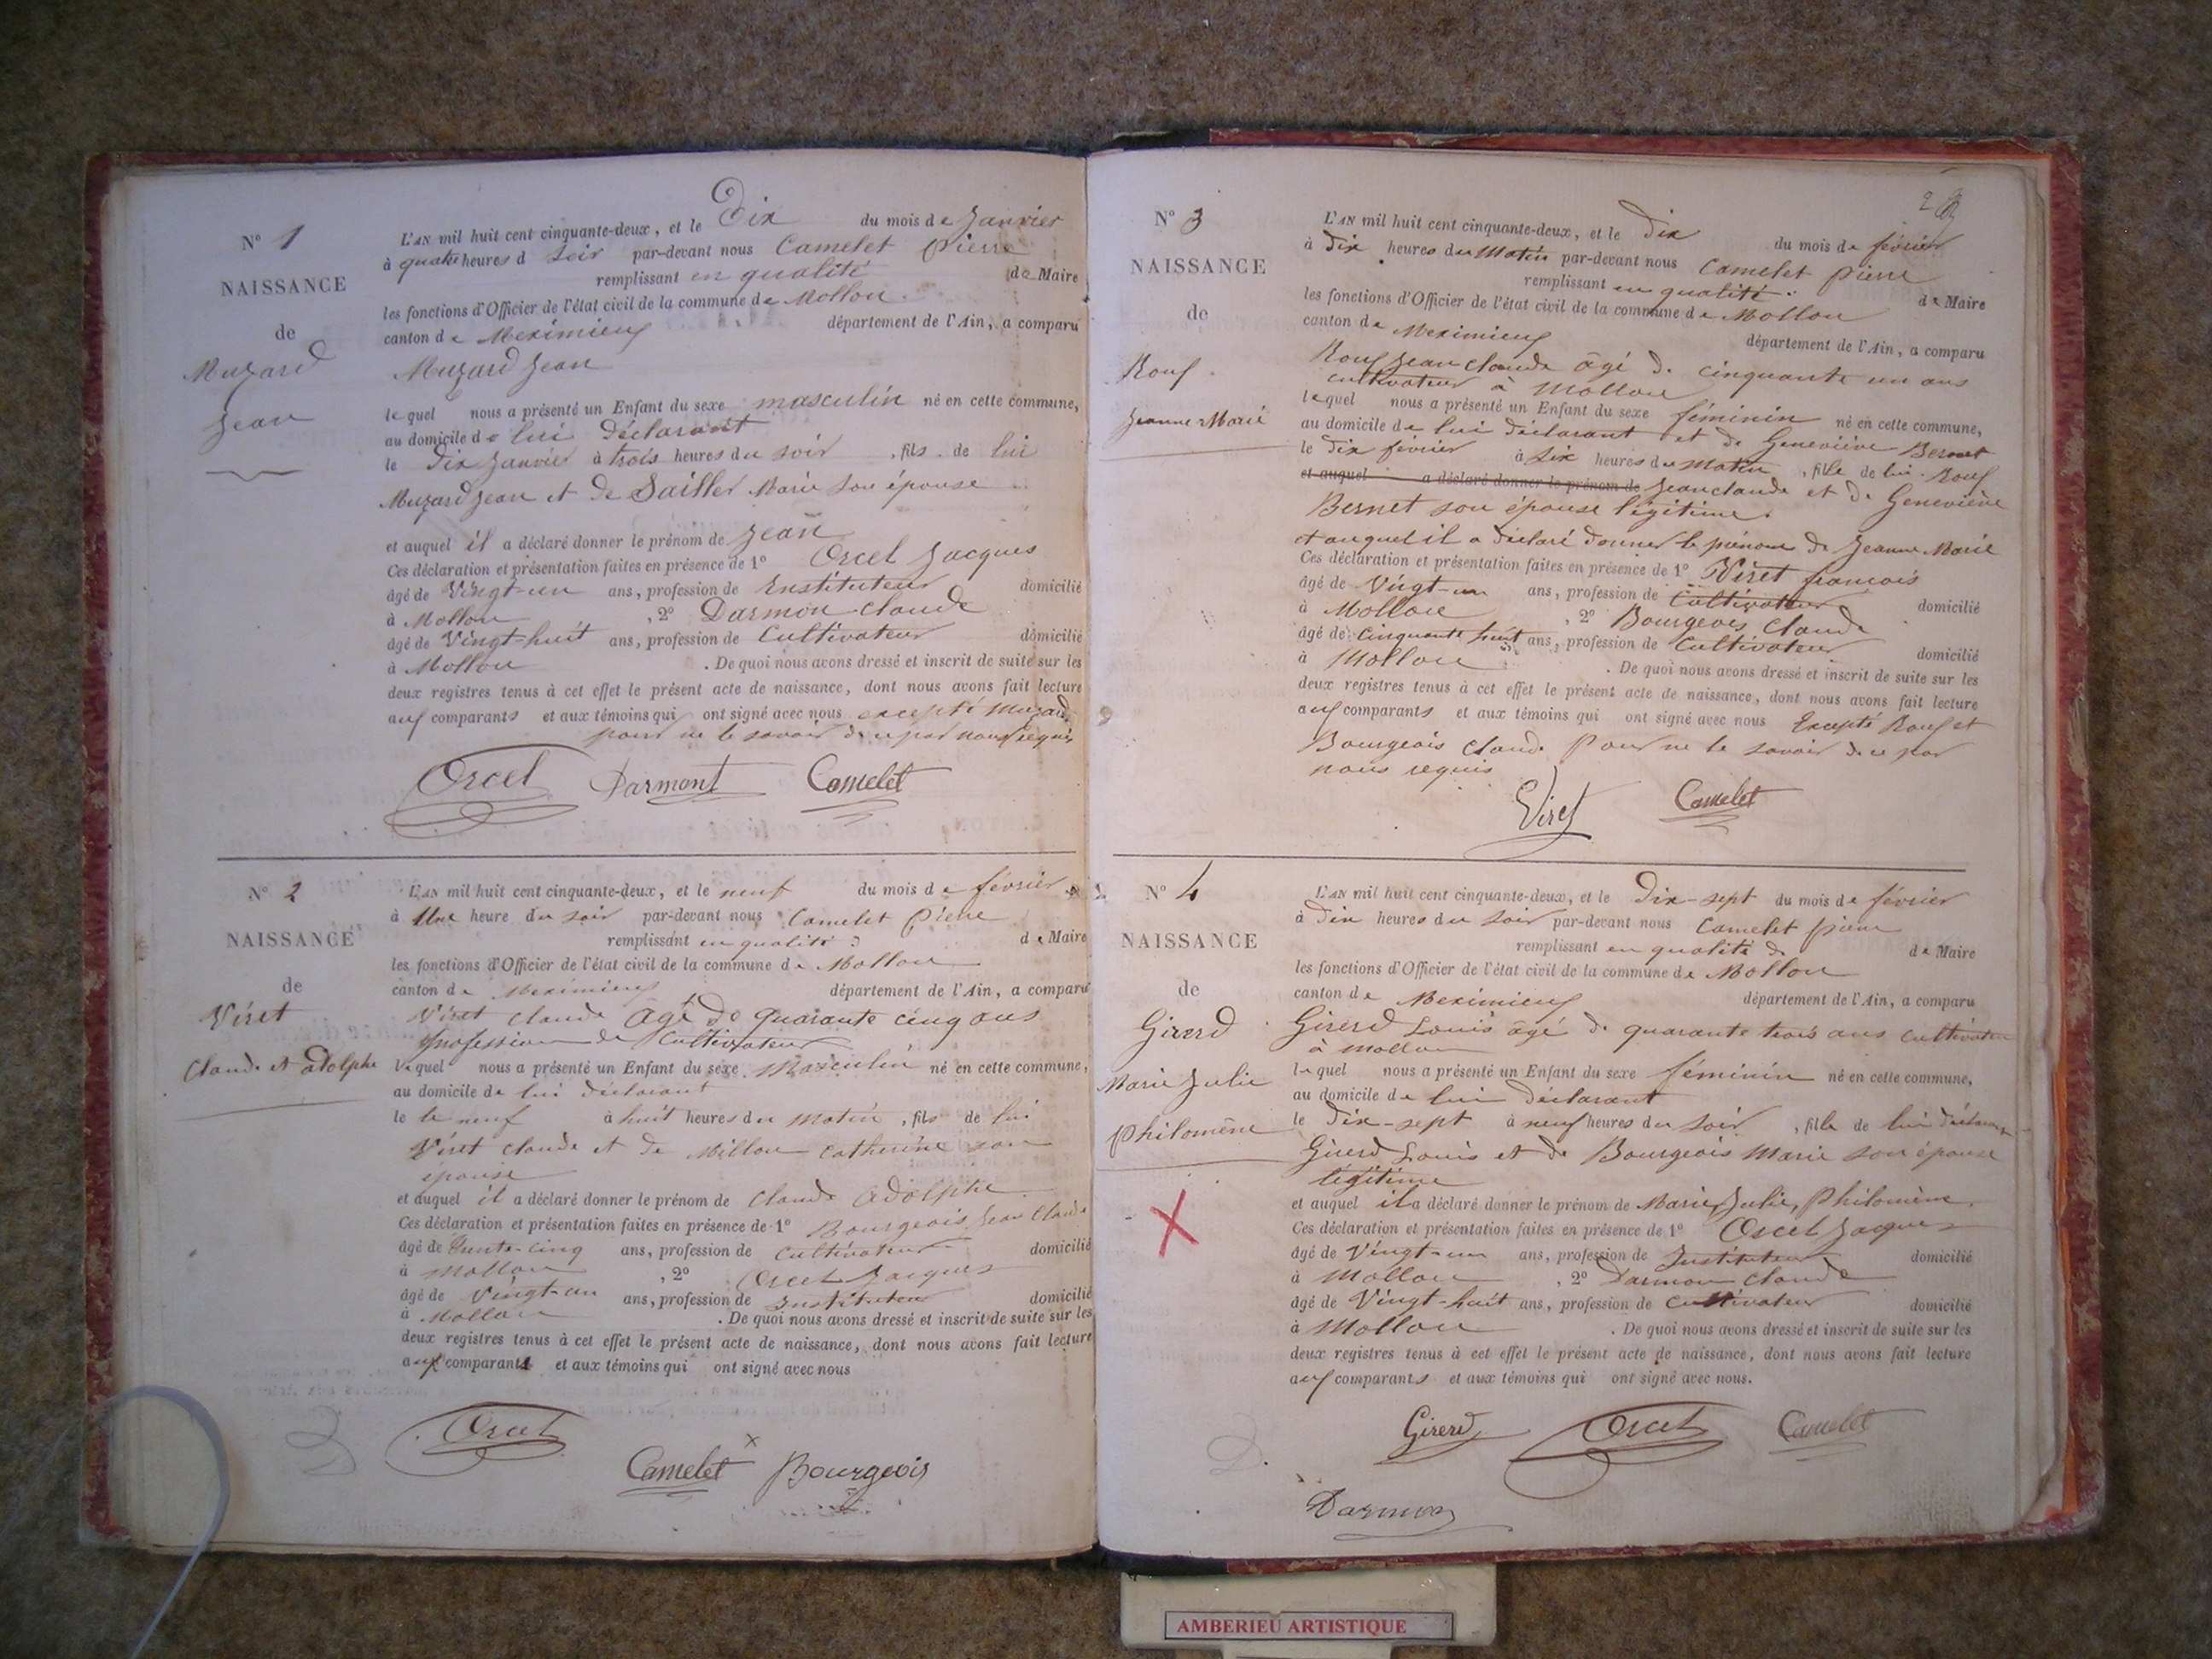 Nº 1
NAISSANCE
de
Muzard
Jean
L'AN mil huit cent cinquante-deux, et le Dix du mois de Janvier
à quatre heures d soir par-devant nous Camelet Pierre
remplissant en qualité de Maire
les fonctions d'Officier de l'état civil de la commune de Mollon
canton de Meximieux département de l'Ain, a comparu
Muzard Jean
lequel nous a présenté un Enfant du sexe masculin né en cette commune,
au domicile de lui Déclarant
le Dix Janvier à trois heures du soir, fils de lui
Muzard Jean et de Sailler Marie son épouse
et auquel il a déclaré donner le prénom de Jean
Ces déclaration et présentation faites en présence de 1º Orcel Jacques
âgé de Vingt-un ans, profession de Instituteur domicilié
à Mollon, 2º Darmon Claude
âgé de Vingt-huit ans, profession de Cultivateur domicilié
à Mollon. De quoi nous avons dressé et inscrit de suite sur les
deux registres tenus à cet effet le présent acte de naissance, dont nous avons fait lecture
aux comparants et aux témoins qui ont signé avec nous excepté Muzard
pour ne le savoir de ce par nous requis
Orcel Darmont Camelet
Nº 2
NAISSANCE
de
Viret
Claude et adolphe
L'AN mil huit cent cinquante-deux, et le neuf du mois de février
à Une heure du soir par-devant nous Camelet Pierre
remplissant en qualité de Maire
les fonctions d'Officier de l'état civil de la commune de Mollon
canton de Meximieux département de l'Ain, a comparu
Viret Claude âgé de quarante cinq ans
profession de Cultivateur
lequel nous a présenté un Enfant du sexe Masculin né en cette commune,
au domicile de lui déclarant
le le neuf à huit heures du matin, fils de lui
Viret Claude et de Millon Catherine son
épouse
et auquel il a déclaré donner le prénom de Claude Adolphe
Ces déclaration et présentation faites en présence de 1º Bourgeois Jean Claude
âgé de trente-cinq ans, profession de Cultivateur domicilié
à Mollon, 2º Orcel Jacques
âgé de Vingt-un ans, profession de Instituteur domicilié
à Mollon. De quoi nous avons dressé et inscrit de suite sur les
deux registres tenus à cet effet le présent acte de naissance, dont nous avons fait lecture
aux comparants et aux témoins qui ont signé avec nous
Orcel
Camelet Bourgeois
2
Nº 3
NAISSANCE
de
Rouf
Jeanne Marie
L'AN mil huit cent cinquante-deux, et le Dix du mois de février
à Dix heures du Matin par-devant nous Camelet Pierre
remplissant en qualité de Maire
les fonctions d'Officier de l'état civil de la commune de Mollon
canton de Meximieux département de l'Ain, a comparu
Rouf Jean claude âgé de cinquante un ans
cultivateur à Mollon
lequel nous a présenté un Enfant du sexe féminin né en cette commune,
au domicile de lui déclarant et de Geneviève Bernet
le Dix février à six heures du matin, fille de lui Rouf
et auquel a déclaré donner le prénom de Jean claude et de Geneviève
Bernet son épouse légitime.
et auquel il a déclaré donner le prénom de Jeanne Marie
Ces déclaration et présentation faites en présence de 1º Viret françois
âgé de Vingt-un ans, profession de Cultivateur domicilié
à Mollon, 2º Bourgeois Claude
âgé de Cinquante huit ans, profession de Cultivateur domicilié
à Mollon. De quoi nous avons dressé et inscrit de suite sur les
deux registres tenus à cet effet le présent acte de naissance, dont nous avons fait lecture
aux comparants et aux témoins qui ont signé avec nous Excepté Rouf et
Bourgeois Claude Pour ne le savoir de ce par
nous requis
Viret Camelet
Nº 4
NAISSANCE
de
Girerd
Marie Julie
Philomène
L'AN mil huit cent cinquante-deux, et le Dix-sept du mois de février
à Dix heures du soir par-devant nous Camelet pierre
remplissant en qualité de de Maire
les fonctions d'Officier de l'état civil de la commune de Mollon
canton de Meximieux département de l'Ain, a comparu
Girerd Louis âgé de quarante trois ans cultivateur
à Mollon
lequel nous a présenté un Enfant du sexe féminin né en cette commune,
au domicile de lui déclarant
le Dix-sept à neuf heures du soir, fille de lui déclarant
Girerd Louis et de Bourgeois Marie son épouse
légitime
et auquel il a déclaré donner le prénom de Marie, Julie, Philomène
Ces déclaration et présentation faites en présence de 1º Orcel Jacques
âgé de Vingt-un ans, profession de Instituteur domicilié
à Mollon, 2º Darmon Claude
âgé de Vingt-huit ans, profession de Cultivateur domicilié
à Mollon. De quoi nous avons dressé et inscrit de suite sur les
deux registres tenus à cet effet le présent acte de naissance, dont nous avons fait lecture
aux comparants et aux témoins qui ont signé avec nous.
Girerd Orcel Camelet
Darmon
AMBERIEU ARTISTIQUE